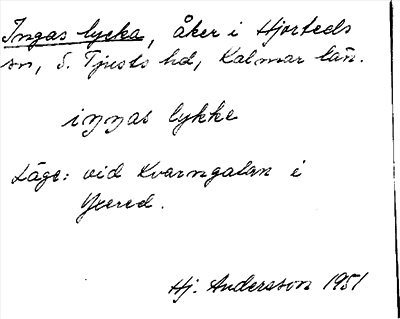 Ingas lycka, åker i Hjorteds
sn, S. Tjusts hd, Kalmar län.
iŋŋas lykke
Läge: vid Kvarngatan i
Hj. Andersson 1951